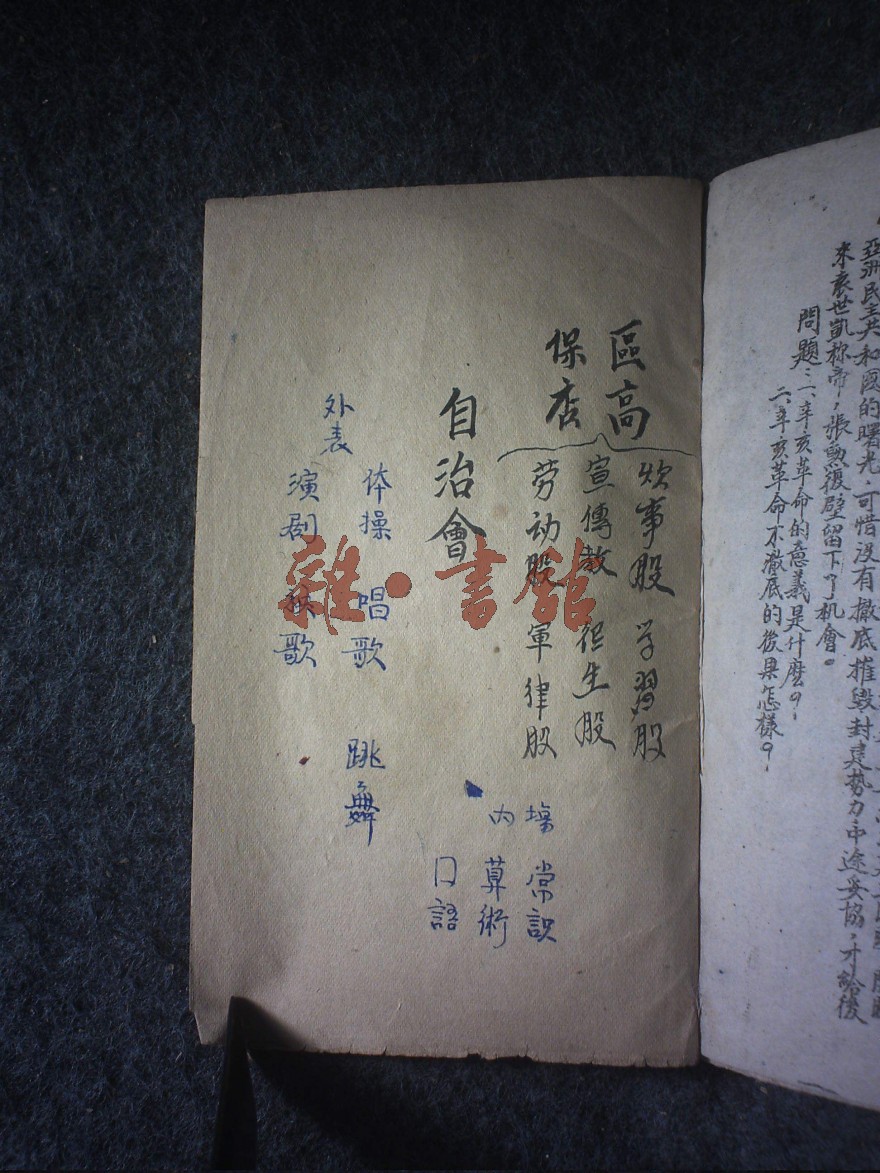 亞洲民主共和國的曙光,可惜沒有撤底摧毀封建势力中途妥協,才給後
来袁世凱称帝,張勳復壁留下了机會。
問題:一、辛亥革命的意義是什麽?
二、辛亥革命不澈底的後果怎樣?
區高
保店
炊事股 学習股
宣傳教 衛生股
劳动股 軍律股
自治會
場内
常識
算術
口語
外表
体操 唱歌 跳舞
演剧 秧歌
雜·書館